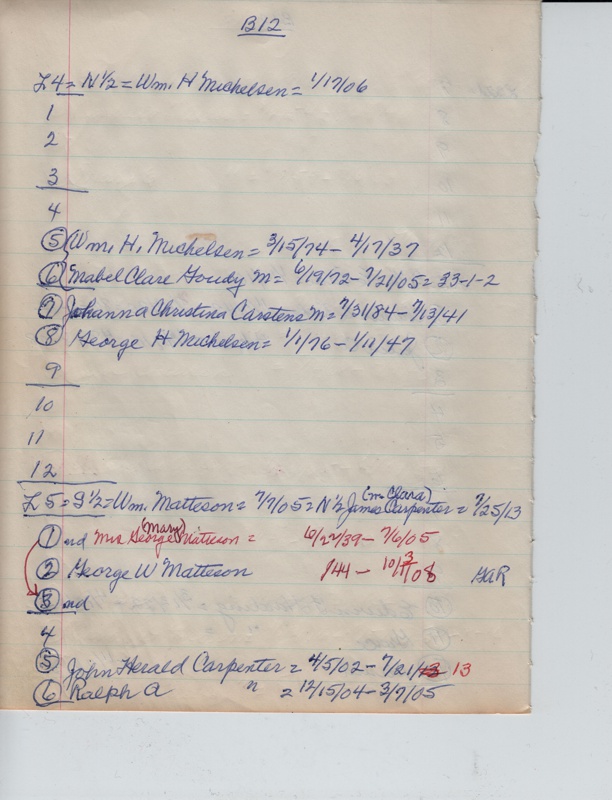 B12
L4 = N 1/2 = Wm. H Michelsen = 1/17/06
1
2
3
4
5 Wm. H. Michelsen = 3/15/74 - 4/17/37
6 Mabel Clare Goudy M = 6/19/72 - 7/21/05 = 33-1-2
7 Johanna Christina Carstens M = 7/31/84 - 7/13/41
8 George H Michelsen = 1/1/76 - 1/11/47
9
10
11
12
L5 = S 1/2 = Wm. Matteson = 7/7/05 = N 1/2 James (m Clara) Carpenter = 7/25/13
1 nd Mrs George (Mary) Matteson = 6/22/39 - 7/6/05
2 George W Matteson 1844 - 10/3/08 GaR
3 nd
4
5 John Herald Carpenter = 4/5/02 - 7/21/13 13
6 Ralph A " = 12/15/04 - 3/7/05